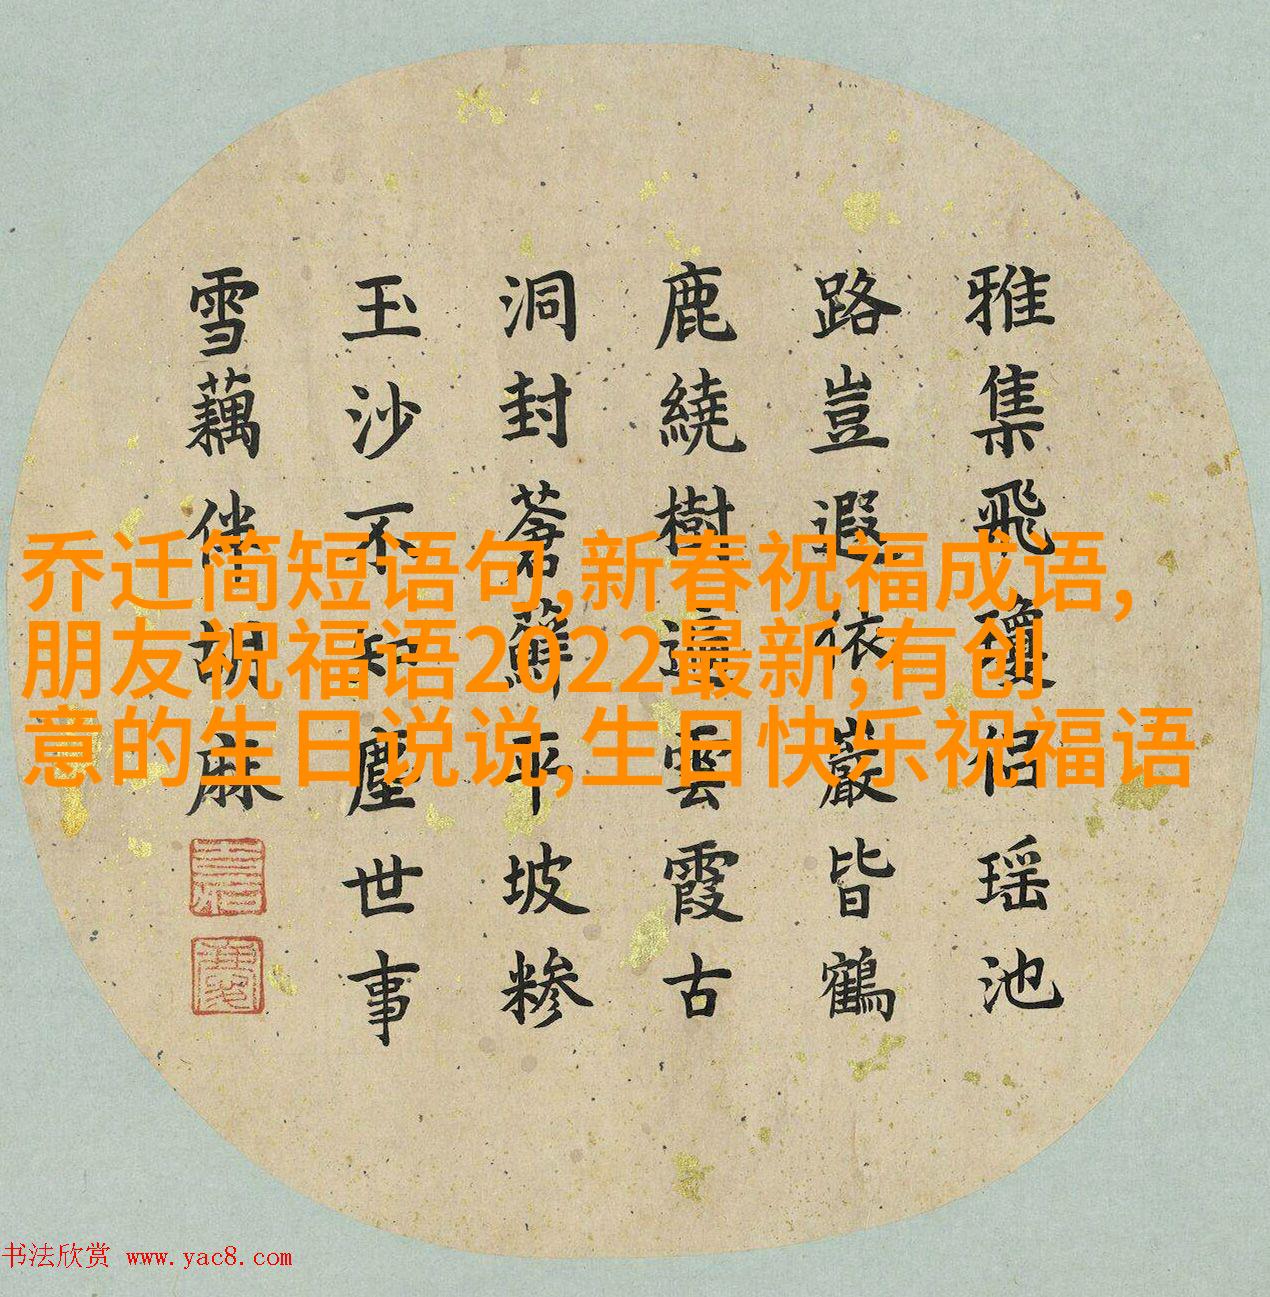 雅集飛瓊侶瑶池
路豈遐依巖皆鶴
鹿繞樹雲霞古
洞封蒼蘚平坡糝
玉沙不知塵世事
雪藕伴胡麻
乔迁简短语句,新春祝福成语,
朋友祝福语2022最新,有创
意的生日说说,生日快乐祝福语
书法欣赏 www.yac8.com